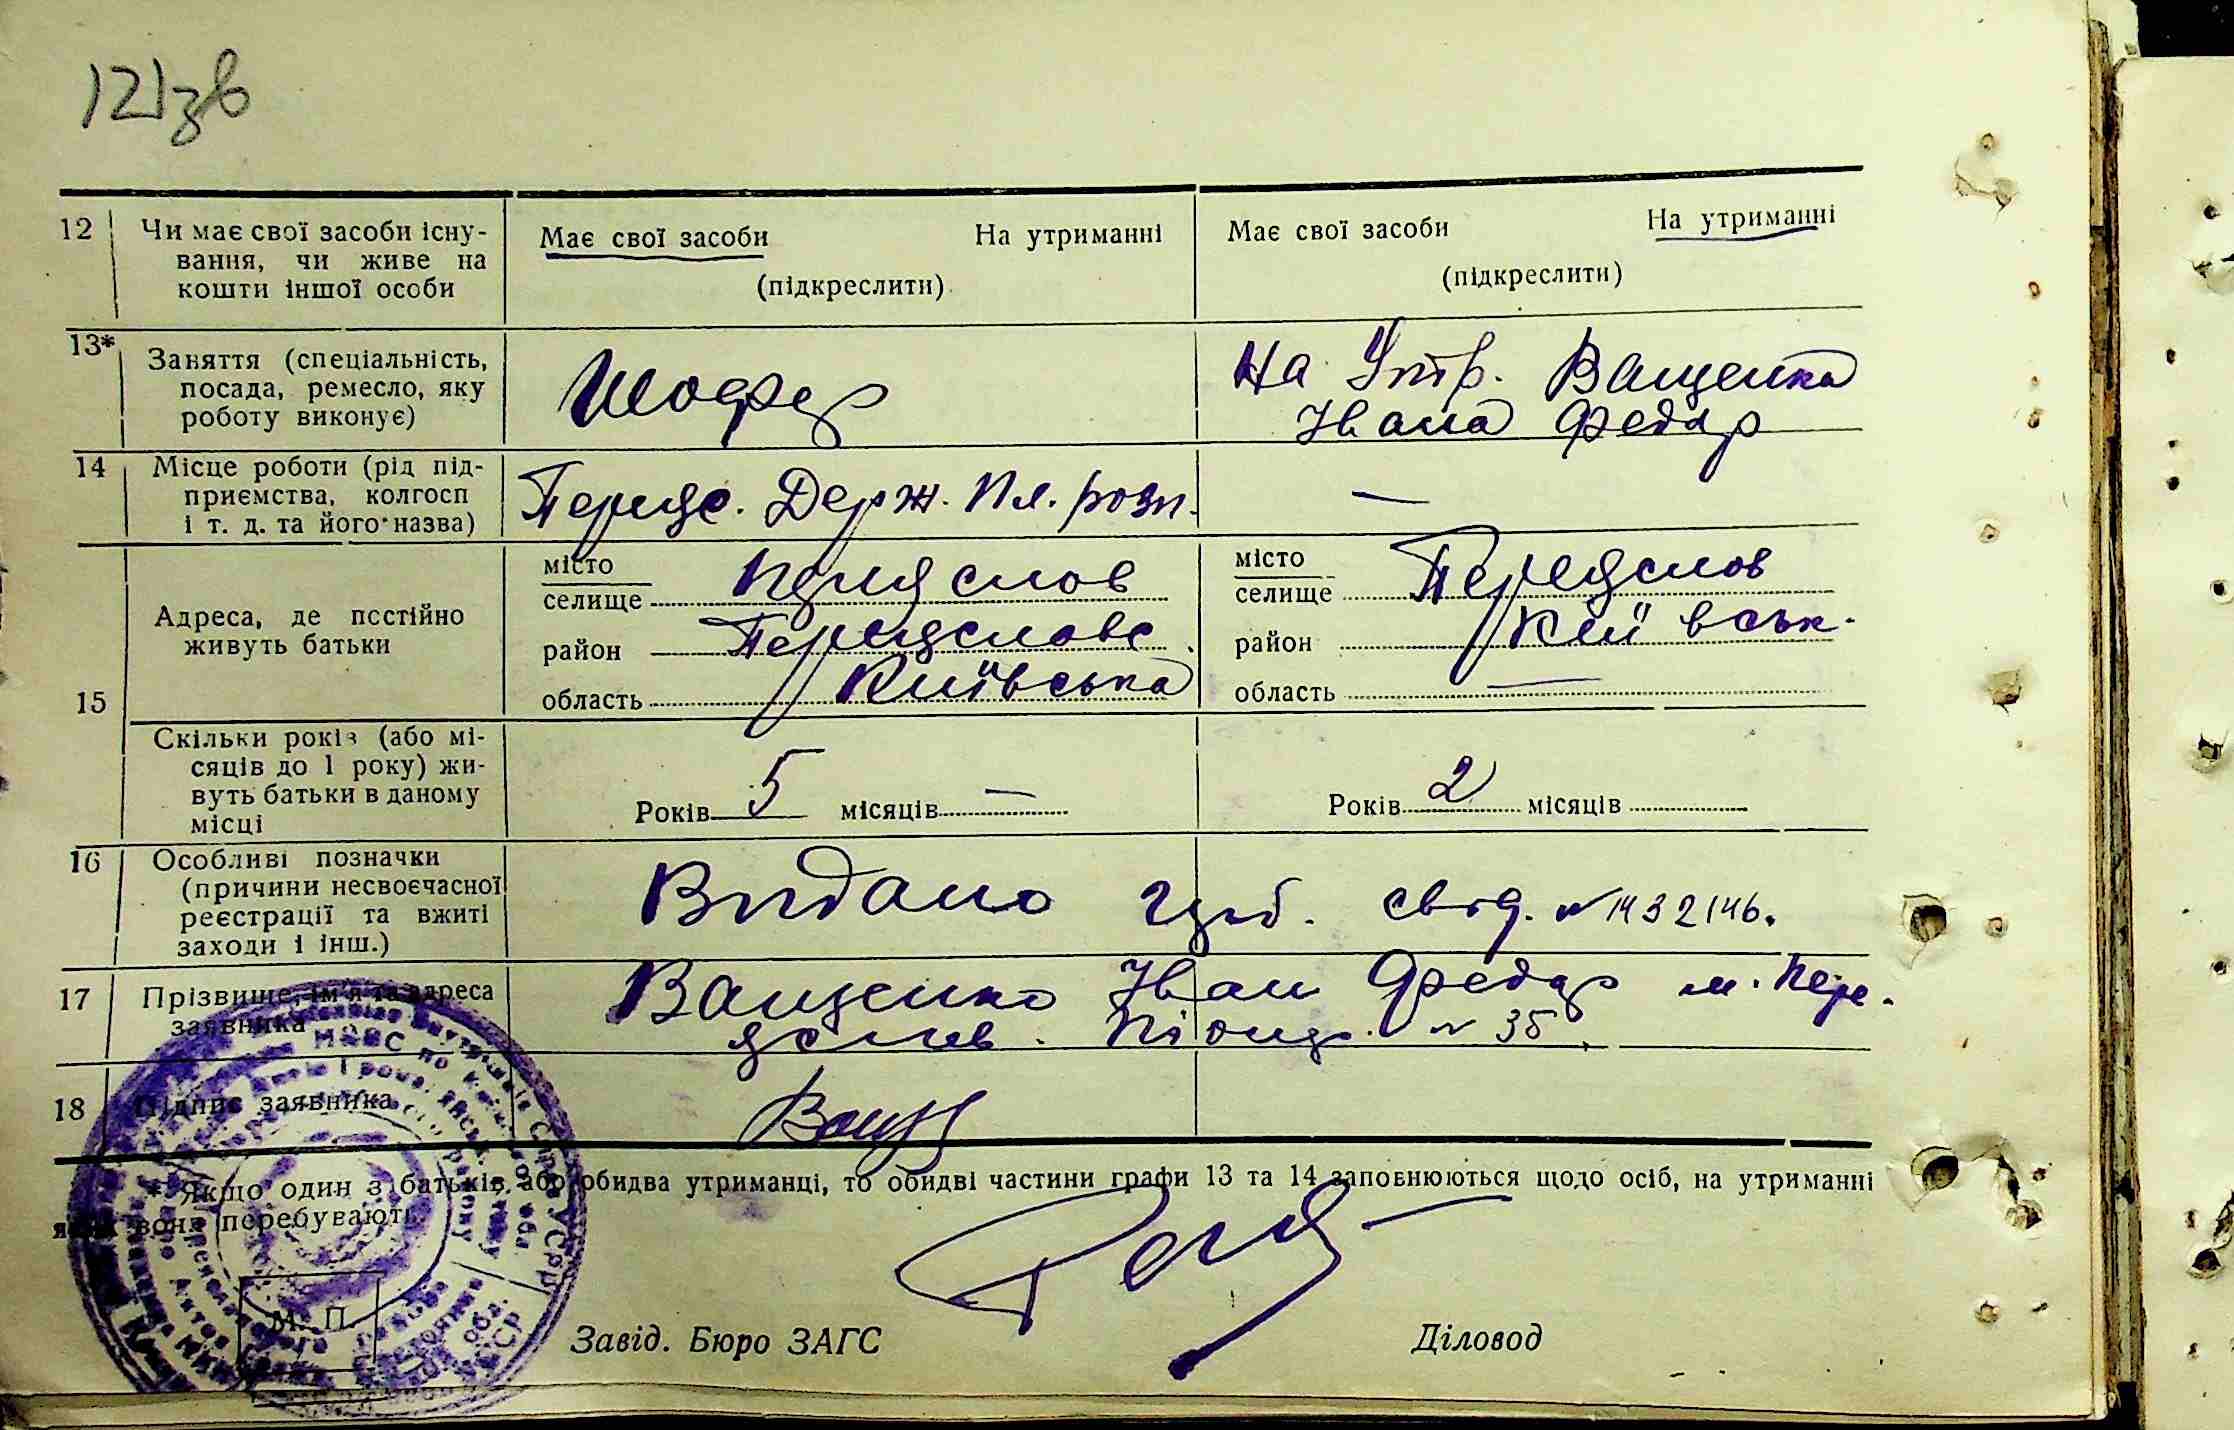 121зв
12 Чи має свої засоби існу-
вання, чи живе на
кошти іншої особи
Має свої засоби На утриманні
(підкреслити)
Має свої засоби На утриманні
(підкреслити)
13* Заняття (спеціальність,
посада, ремесло, яку
роботу виконує)
Шофер
На Утр. Ващенка
Івана Федор
14 Місце роботи (рід під-
приємства, колгосп
і т. д. та його назва)
Переяс. Держ. Пл. розп.
—
15 Адреса, де постійно
живуть батьки
місто
селище Переяслов
район Переяславс
область Київська
місто
селище Переяслов
район Київськ.
область —
Скільки років (або мі-
сяців до 1 року) жи-
вуть батьки в даному
місці
Років 5 місяців —
Років 2 місяців
16 Особливі позначки
(причини несвоєчасної
реєстрації та вжиті
заходи і інш.)
Видано свід. № 1432146.
17 Прізвище, ім'я та адреса
заявника
Ващенко Іван Федор м. Пере-
яслов. № 35
18 Підпис заявника
Ващ
* Якщо один з батьків або обидва утриманці, то обидві частини графи 13 та 14 заповнюються щодо осіб, на утриманні
яких вони перебувають.
М. П.
Завід. Бюро ЗАГС
Діловод